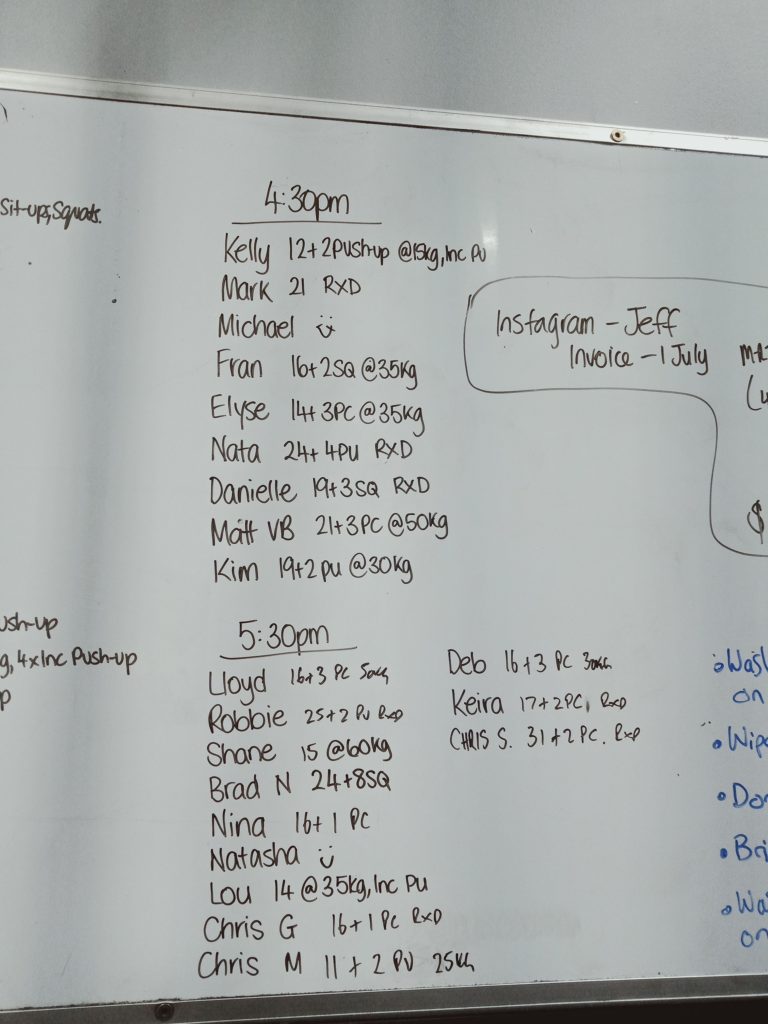 Sit-ups, Squats.
4:30pm
Kelly 12+2push-up @15kg, Inc PU
Mark 21 RXD
Michael
Fran 16+2SQ @35kg
Elyse 14+3PC @35kg
Nata 24+4PU RXD
Danielle 19+3SQ RXD
Matt VB 21+3PC @50kg
Kim 19+2PU @30kg
Instagram - Jeff
Invoice - 1 July
$
ush-up
g, 4xInc Push-up
p
5:30pm
Lloyd 16+3 PC 50kg
Robbie 25+2 PU RXD
Shane 15 @60kg
Brad N 24+8SQ
Nina 16+1 PC
Natasha
Lou 14 @35kg, Inc PU
Chris G 16+1 PC RXD
Chris M 11+2 PU 25kg
Deb 16+3 PC 30kg
Keira 17+2PC, RXD
CHRIS S. 31+2 PC. RXD
on
on